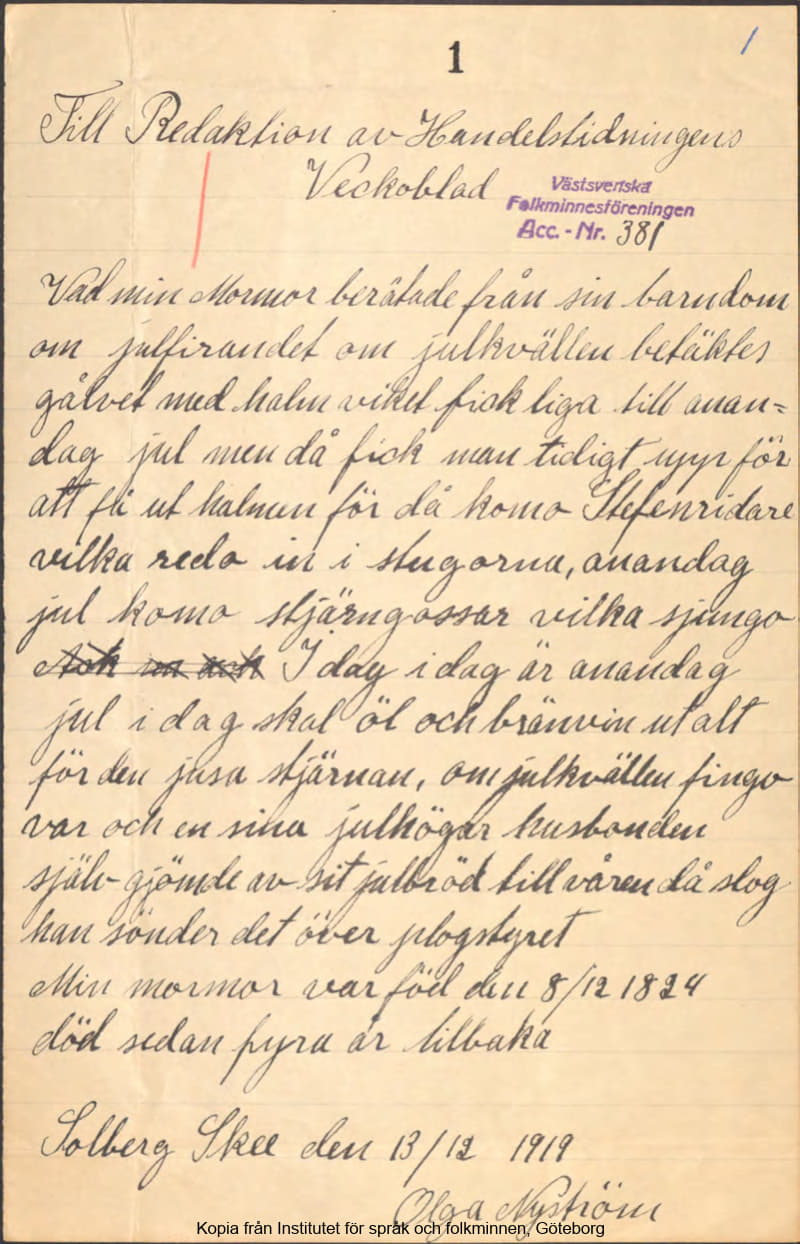 1
1
Till Redaktion av Handelstidningens
Veckoblad
Västsvenska
Folkminnesföreningen
Acc.-Nr. 381
Vad min Mormor berätade från sin barndom
om julfirandet om julkvällen betäktes
gålvet med halm viket fick liga till anan=
dag jul men då fick man tidigt upp för
att få ut halmen för då komo Stefenridare
vilka redo in i stugorna, anandag
jul komo stjärngossar vilka sjungo
I dag i dag är anandag
jul i dag skal öl och bränvin utalt
för den jusa stjärnan, om julkvällen fingo
var och en sina julhögar husbonden
själv gjömde av sit julbröd till våren då slog
han sönder det över plogstyret
Min mormor var föd den 8/12 1824
död sedan fyra år tilbaka
Solberg Skee den 13/12 1919
Olga Nyström
Kopia från Institutet för språk och folkminnen, Göteborg